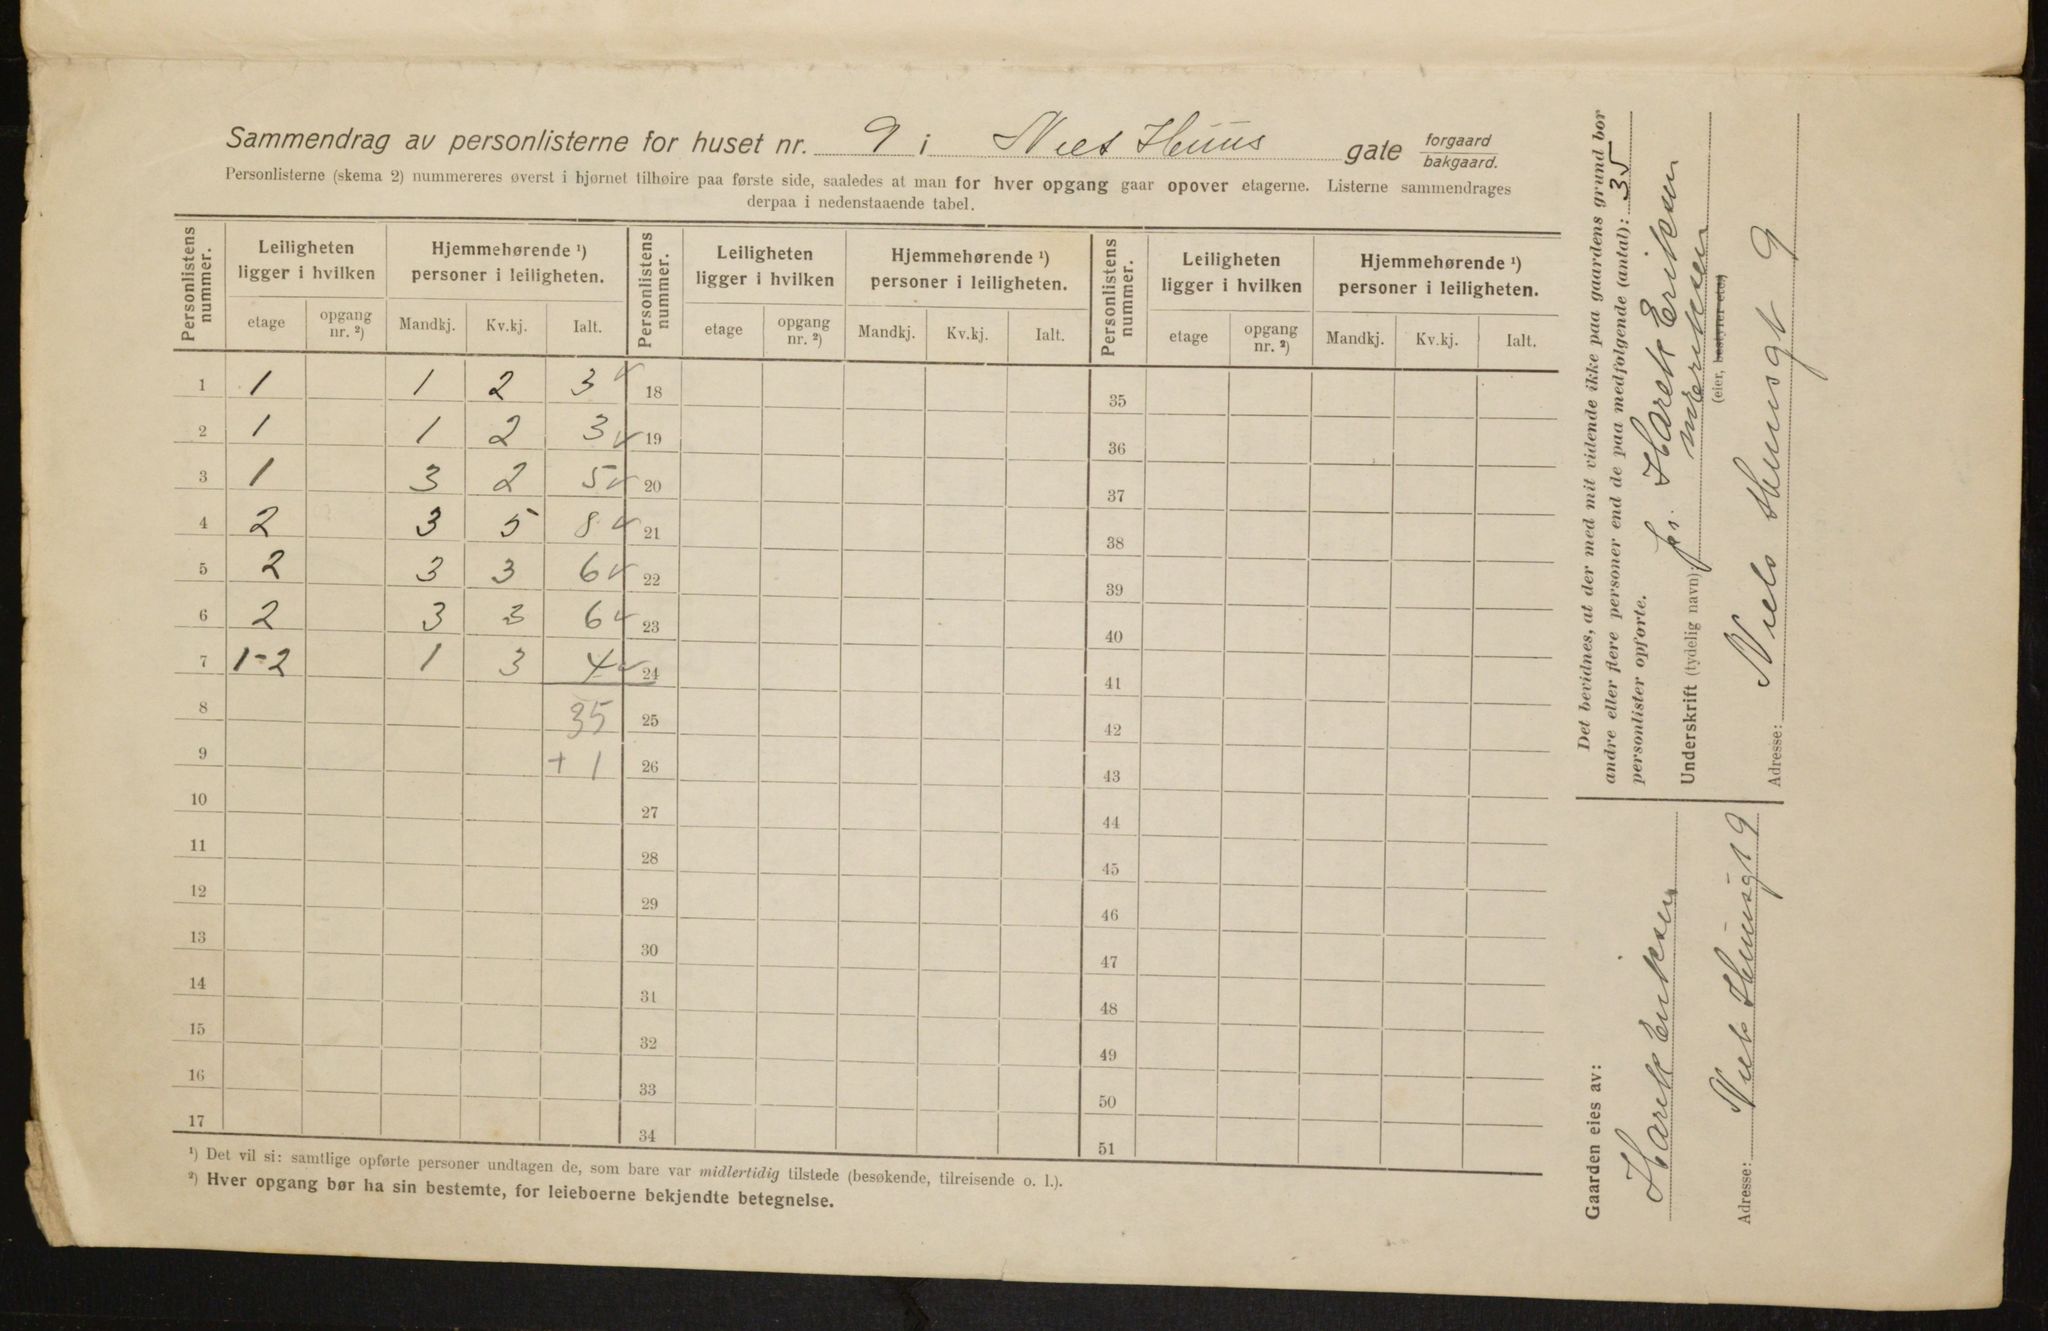 Sammendrag av personlisterne for huset nr. 9 i Niels Huus gate forgaard bakgaard.
Personlisterne (skema 2) nummereres øverst i hjørnet tilhøire paa første side, saaledes at man for hver opgang gaar opover etagerne. Listerne sammendrages
derpaa i nedenstaaende tabel.
Personlistens nummer. Leiligheten ligger i hvilken Hjemmehørende ¹) personer i leiligheten. Personlistens nummer. Leiligheten ligger i hvilken Hjemmehørende ¹) personer i leiligheten. Personlistens nummer. Leiligheten ligger i hvilken Hjemmehørende ¹) personer i leiligheten.
etage opgang nr. ²) Mandkj. Kv.kj. Ialt. etage opgang nr. ²) Mandkj. Kv.kj. Ialt. etage opgang nr. ²) Mandkj. Kv.kj. Ialt.
1 1 1 2 3 ✓ 18 35
2 1 1 2 3 ✓ 19 36
3 1 3 2 5 ✓ 20 37
4 2 3 5 8 ✓ 21 38
5 2 3 3 6 ✓ 22 39
6 2 3 3 6 ✓ 23 40
7 1-2 1 3 4 ✓ 24 41
8 35 25 42
9 + 1 26 43
10 27 44
11 28 45
12 29 46
13 30 47
14 31 48
15 32 49
16 33 50
17 34 51
¹) Det vil si: samtlige opførte personer undtagen de, som bare var midlertidig tilstede (besøkende, tilreisende o. l.).
²) Hver opgang bør ha sin bestemte, for leieboerne bekjendte betegnelse.
Det bevidnes, at der med mit vidende ikke paa gaardens grund bor
andre eller flere personer end de paa medfølgende (antal): 35
personlister opførte.
Underskrift (tydelig navn): Harek Eriksen
(eier, bestyrer etc.)
Adresse: Niels Huusgt 9
Gaarden eies av:
Harek Eriksen
Adresse: Niels Huusgt 9